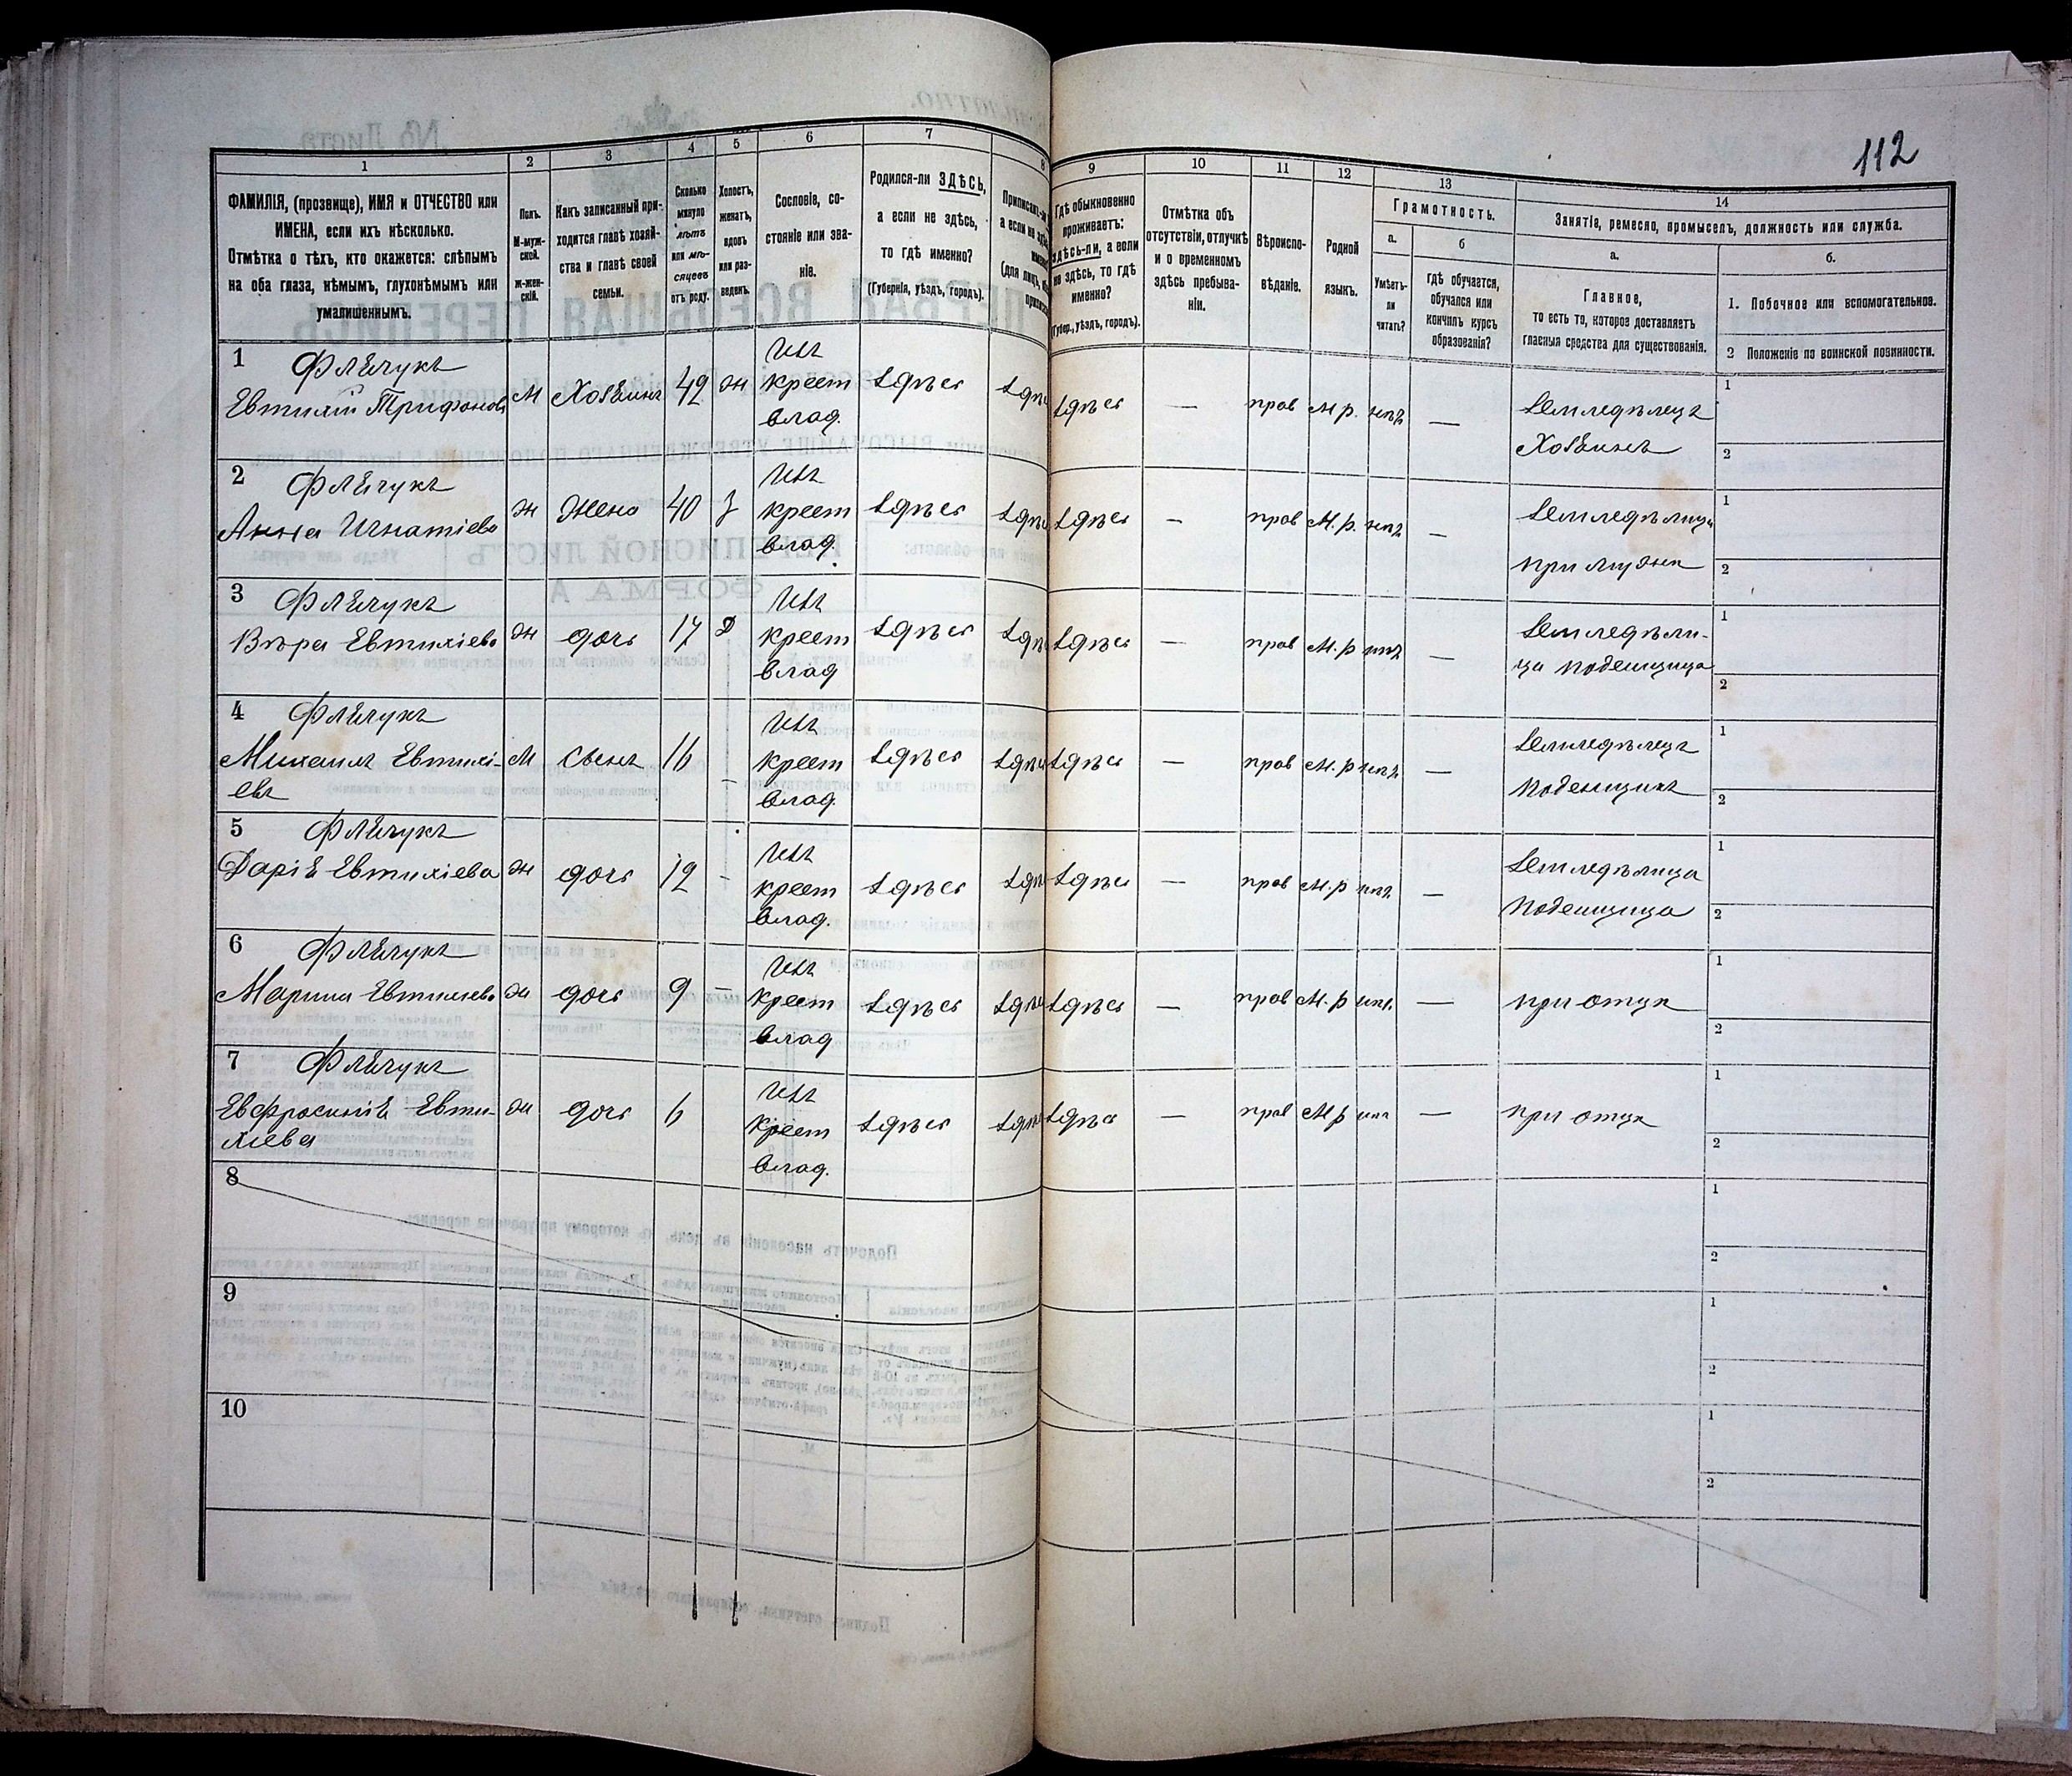 112
1 2 3 4 5 6 7 8 9 10 11 12 13 14
ФАМИЛІЯ, (прозвище), ИМЯ и ОТЧЕСТВО или
ИМЕНА, если ихъ нѣсколько.
Отмѣтка о тѣхъ, кто окажется: слѣпымъ
на оба глаза, нѣмымъ, глухонѣмымъ или
умалишеннымъ.
Полъ.
М-муж-
ской.
Ж-жен-
скій.
Какъ записанный при-
ходится главѣ хозяй-
ства и главѣ своей
семьи.
Сколько
минуло
лѣтъ
или мѣ-
сяцевъ
отъ роду.
Холостъ,
женатъ,
вдовъ
или раз-
веденъ.
Сословіе, со-
стояніе или зва-
ніе.
Родился-ли ЗДѢСЬ,
а если не здѣсь,
то гдѣ именно?
(Губернія, уѣздъ, городъ).
Гдѣ обыкновенно
проживаетъ:
здѣсь-ли, а если
не здѣсь, то гдѣ
именно?
(Губер., уѣздъ, городъ).
Отмѣтка объ
отсутствіи, отлучкѣ
и о временномъ
здѣсь пребыва-
ніи.
Вѣроиспо-
вѣданіе.
Родной
языкъ.
Грамотность.
а.
Умѣетъ-
ли
читать?
б
гдѣ обучается,
обучался или
кончилъ курсъ
образованія?
Занятія, ремесло, промыселъ, должность или служба.
а.
Главное,
то есть то, которое доставляетъ
главныя средства для существованія.
б.
1. Побочное или вспомогательное.
2 Положеніе по воинской повинности.
1
Евтихій Трифоновъ
м Хозяинъ 42 ж
крест
влад.
здѣсь здѣсь
— прав М.р. нѣтъ —
земледѣлецъ
Хозяинъ
1
2
2
Анна Игнатіева
ж жена 40 з
крест
влад.
здѣсь здѣсь
— прав М.р. нѣтъ —
земледѣлица
при мужѣ
1
2
3
Вѣра Евтихіева
ж дочь 17 д
крест
влад
здѣсь здѣсь
— прав М.р нѣтъ —
земледѣли-
ца поденщица
1
2
4
Михаилъ Евтихі-
евъ
м сынъ 16 —
крест
влад.
здѣсь здѣсь
— прав М.р нѣтъ —
земледѣлецъ
поденщикъ
1
2
5
Дарія Евтихіева
ж дочь 12 -
крест
влад.
здѣсь здѣсь
— прав М.р нѣтъ —
земледѣлица
поденщица
1
2
6
Марина Евтихіева
ж дочь 9 —
крест
влад
здѣсь здѣсь
— прав М.р нѣтъ —
при отцѣ
1
2
7
Евфросинія Евти-
хіева
ж дочь 6
крест
влад.
здѣсь здѣсь
— прав М.р —
при отцѣ
1
2
8
1
2
9
1
2
10
1
2